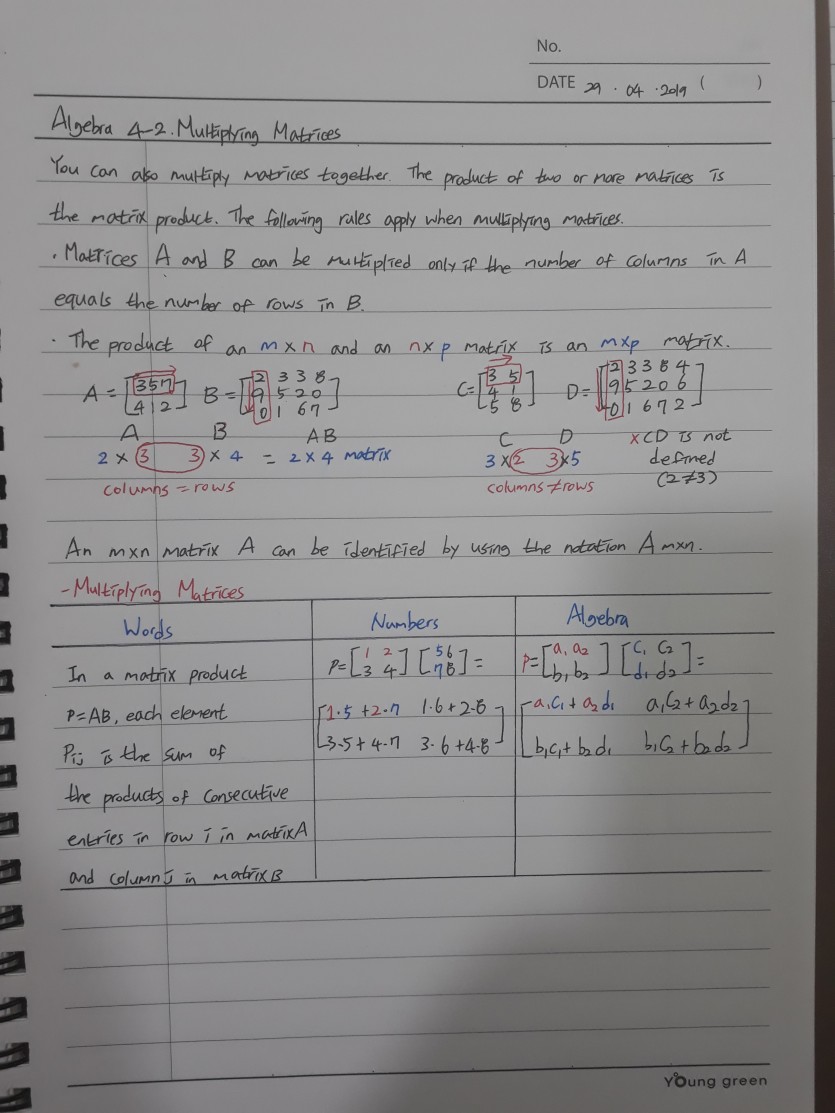 No.
DATE 29 · 04 · 2019 ( )
Algebra 4-2. Multiplying Matrices
You can also multiply matrices together. The product of two or more matrices is
the matrix product. The following rules apply when multiplying matrices.
· Matrices A and B can be multiplied only if the number of columns in A
equals the number of rows in B.
· The product of an m×n and an n×p matrix is an m×p matrix.
A = [3 5 7 B = [2 3 3 8 C = [3 5 D = [2 3 3 8 4
4 1 2] 9 5 2 0 4 1 9 5 2 0 6
0 1 6 7] 5 8] 0 1 6 7 2]
A B AB C D ×CD is not
2 × 3 3 × 4 = 2 × 4 matrix 3 × 2 3 × 5 defined
columns = rows columns ≠ rows (2≠3)
An m×n matrix A can be identified by using the notation A m×n.
- Multiplying Matrices
Words Numbers Algebra
In a matrix product
P=AB, each element
Pij is the sum of
the products of consecutive
entries in row i in matrix A
and column j in matrix B
P= [1 2 [5 6
3 4] 7 8] =
[1·5+2·7 1·6+2·8
3·5+4·7 3·6+4·8]
P= [a₁ a₂ [c₁ c₂
b₁ b₂] d₁ d₂] =
[a₁c₁+a₂d₁ a₁c₂+a₂d₂
b₁c₁+b₂d₁ b₁c₂+b₂d₂]
Young green